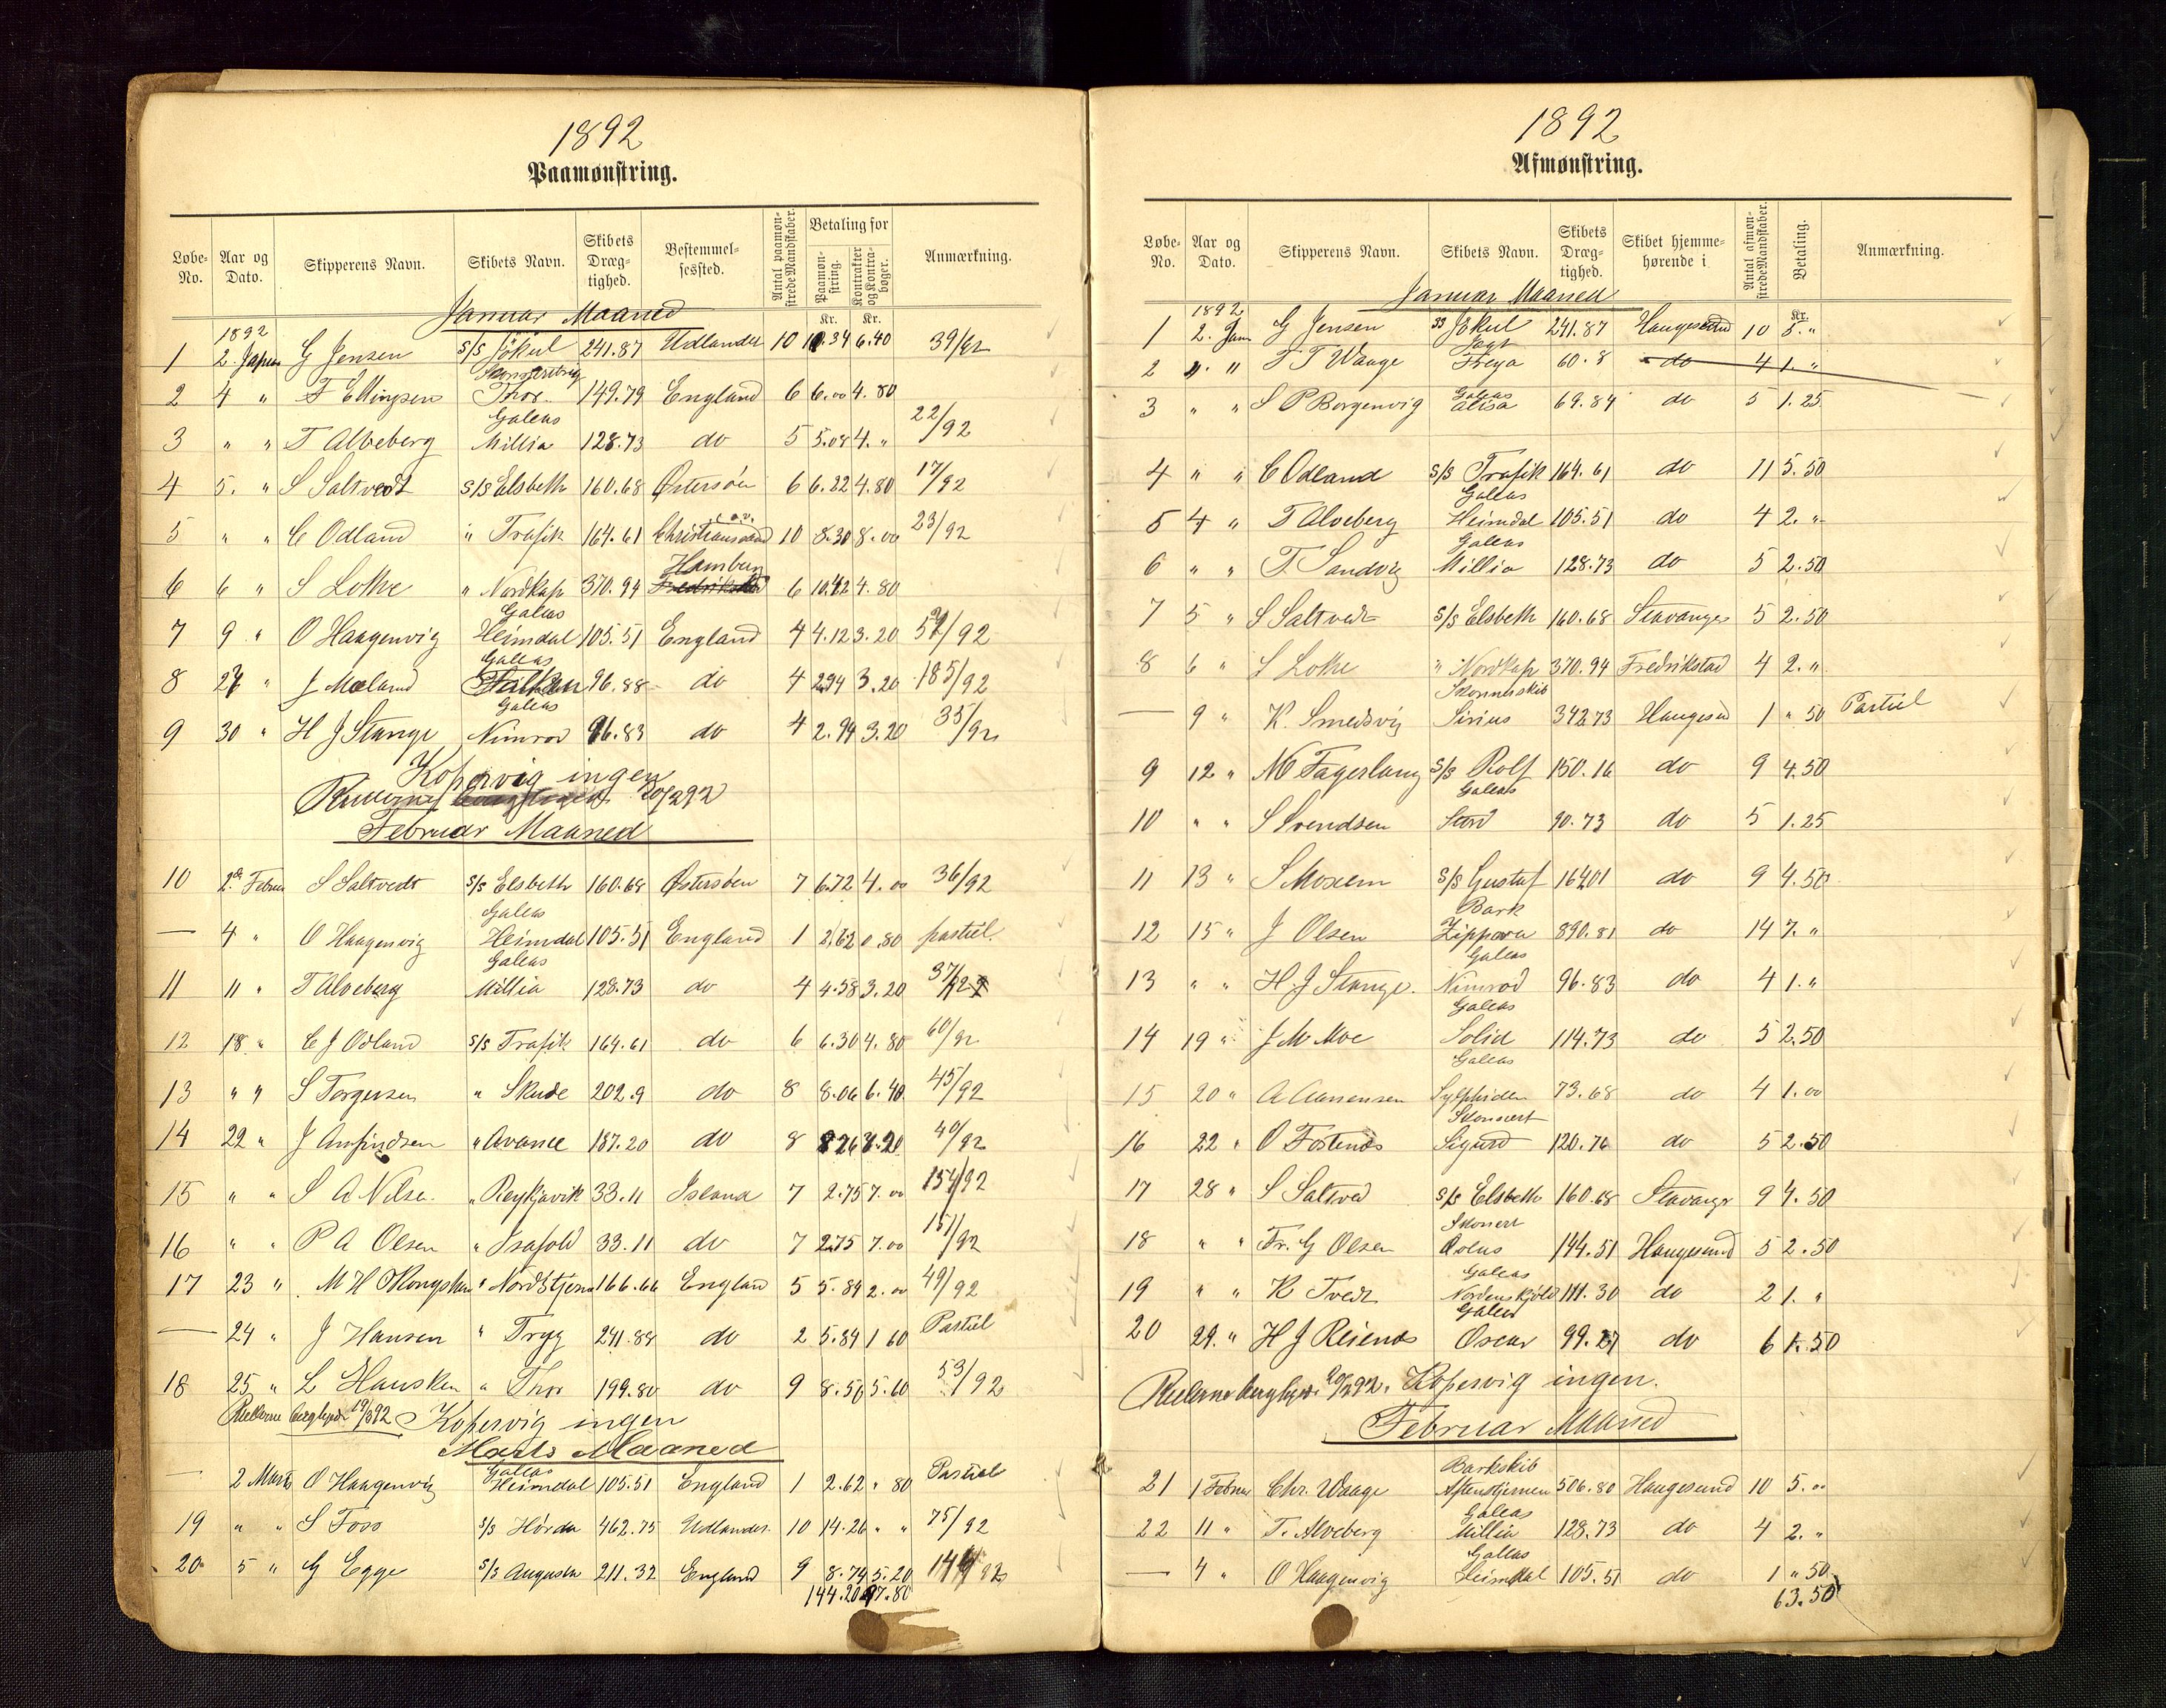 1892
Paamønstring.
Løbe-No. Aar og Dato. Skipperens Navn. Skibets Navn. Skibets Dræg-tighed. Bestemmel-sessted. Antal paamøn-strede Mandskaber. Betaling for Paamøn-string. Kontrakter og Kontra-bøger. Anmærkning.
Januar Maaned
Kr. Kr.
1892
1 2. Januar G Jensen s/s Jökul 241.87 Udlandet 10 10.34 6.40 39/92
Skonnertbrig
2 4 " F Ellingsen Thor 149.79 England 6 6.00 4.80
Galeas
3 " " T Alveberg Millia 128.73 do 5 5.08 4. " 22/92
4 5. " S Saltvedt s/s Elsbeth 160.68 Østersøen 6 6.22 4.80 17/92
5 " " C Odland " Trafik 164.61 Christiansand o.v. 10 8.30 8.00 23/92
Hamburg
6 6 " S Lothe " Nordkap 370.94 Fredrikstad 6 10.42 4.80
Galeas
7 9 " O Haagenvig Heimdal 105.51 England 4 4.12 3.20 /92
Galeas
8 27 " J Mæland 96.88 do 4 2.94 3.20 185/92
Galeas
9 30 " H J Stange Nimrod 96.83 do 4 2.94 3.20 35/92
Kopervig ingen
20/2 92
Februar Maaned
10 2de Februar S Saltvedt s/s Elsbeth 160.68 Østersøen 7 6.72 4.00 36/92
Galeas
— 4 " O Haagenvig Heimdal 105.51 England 1 2.62 0.80 partiel.
Galeas
11 11 " T Alveberg Millia 128.73 do 4 4.58 3.20 37/92
12 18 " C J Odland s/s Trafik 164.61 do 6 6.30 4.80 60/92
13 " " S Torgersen " Skude 202.9 do 8 8.06 6.40 45/92
14 22 " J Amfindsen " Avance 187.20 do 8 8.26 3.20 40/92
15 " " S A Nilsen " Reykjavik 33.11 Island 7 2.75 7.00 154/92
16 " " P A Olsen " Isafold 33.11 do 7 2.75 7.00 151/92
17 23 " M H Kongshavn " Nordstjern 166.66 England 5 5.84 2.00 49/92
— 24 " J Hansen " Tryg 241.84 do 2 5.84 1 60 Partiel
18 25 " L Hausken " Thor 199.80 do 9 8.56 5.60 53/92
19/3 92 Kopervig ingen
Marts Maaned
Galeas
— 2 Marts O Haagenvig Heimdal 105.51 England 1 2.62 " 80 Partiel
19 " " S Foss s/s Hørda 462.75 Udlandet. 10 14.26 " " 75/92
20 5 " G Egge s/s Augusta 211.32 England 9 8.74 5.20 /92
144.20 97.80
1892
Afmønstring.
Løbe-No. Aar og Dato. Skipperens Navn. Skibets Navn. Skibets Dræg-tighed. Skibet hjemme-hørende i Antal afmøn-strede Mandskaber. Betaling. Anmærkning.
Januar Maaned
1892 Kr.
1 2. Jan G Jensen ss Jökul 241.87 Haugesund 10 5. "
Jagt
2 " " T T Waage Freya 60.8 do 4 1. "
Galeas
3 " " S P Borgenvig Alisa 69.84 do 5 1.25
4 " " C Odland s/s Trafik 164.61 do 11 5.50
Galeas
5 4 " T Alveberg Heimdal 105.51 do 4 2. "
Galeas
6 " " T. Sandvig Millia 128.73 do 5 2.50
7 5 " S Saltvedt s/s Elsbeth 160.68 Stavanger 5 2.50
8 6 " S Lothe " Nordkap 370.94 Fredrikstad 4 2. "
Skonnerskib
— 9 " K. Smedsvig Sirius 342.73 Haugesd 1 " 50 Partiel
9 12 " N Fagerland s/s Rolf 150.16 do 9 4.50
Galeas
10 " " S Svendsen Stord 90.73 do 5 1.25
11 13 " S Moxem s/s Gustaf 164.01 do 9 4.50
Bark
12 15 " J Olsen Zippora 890.81 do 14 7. "
Galeas
13 " " H. J Stange. Nimrod 96.83 do 4 1. "
Galeas
14 19 " J M Moe Solid 114.73 do 5 2.50
Galeas
15 20 " A Aanensen Sylphiden 73.68 do 4 1.00
Skonnert
16 22 " O Fostenæs Sigurd 120.76 do 5 2.50
17 28 " S Saltved s/s Elsbeth 160.68 Stavanger 9 4.50
Skonert
18 " " Fr. G Olsen Æolus 144.51 Haugesund 5 2.50
Galeas
19 " " K Tvedt Nordenskjöld 111.30 do 2 1. "
Galeas
20 29. " H J Reienæs Oscar 99. do 6 1.50
20/2 92. Kopervig ingen.
Februar Maaned
Barkskib
21 1 Februar Chr. Waage Aftenstjernen 506.80 Haugesund 10 5.00
Galeas
22 11 " T. Alveberg Millia 128.73 do 4 2. "
Galeas
— 4 " O Haagenvig Heimdal 105.51 do 1 " 50
63.50